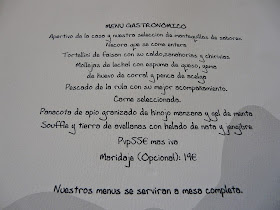 MENU GASTRONÓMICO
Apertivo de la casa y nuestra selección de mantequillas de sabores
Nécora que se come entera
Tortellini de faisan con su caldo, zanahorias y chirivias
Mollejas de lechal con espuma de queso, yema
de huevo de corral y panca de acelga
Pescado de la rula con su mejor acompañamiento.
Carne seleccionada.
Panacota de apio granizado de hinojo manzana y gel de menta
Souffle y tierra de avellanas con helado de nata y jengibre
Pvp55€ mas iva
Maridaje (Opcional): 19€
Nuestros menus se serviran a mesa completa.